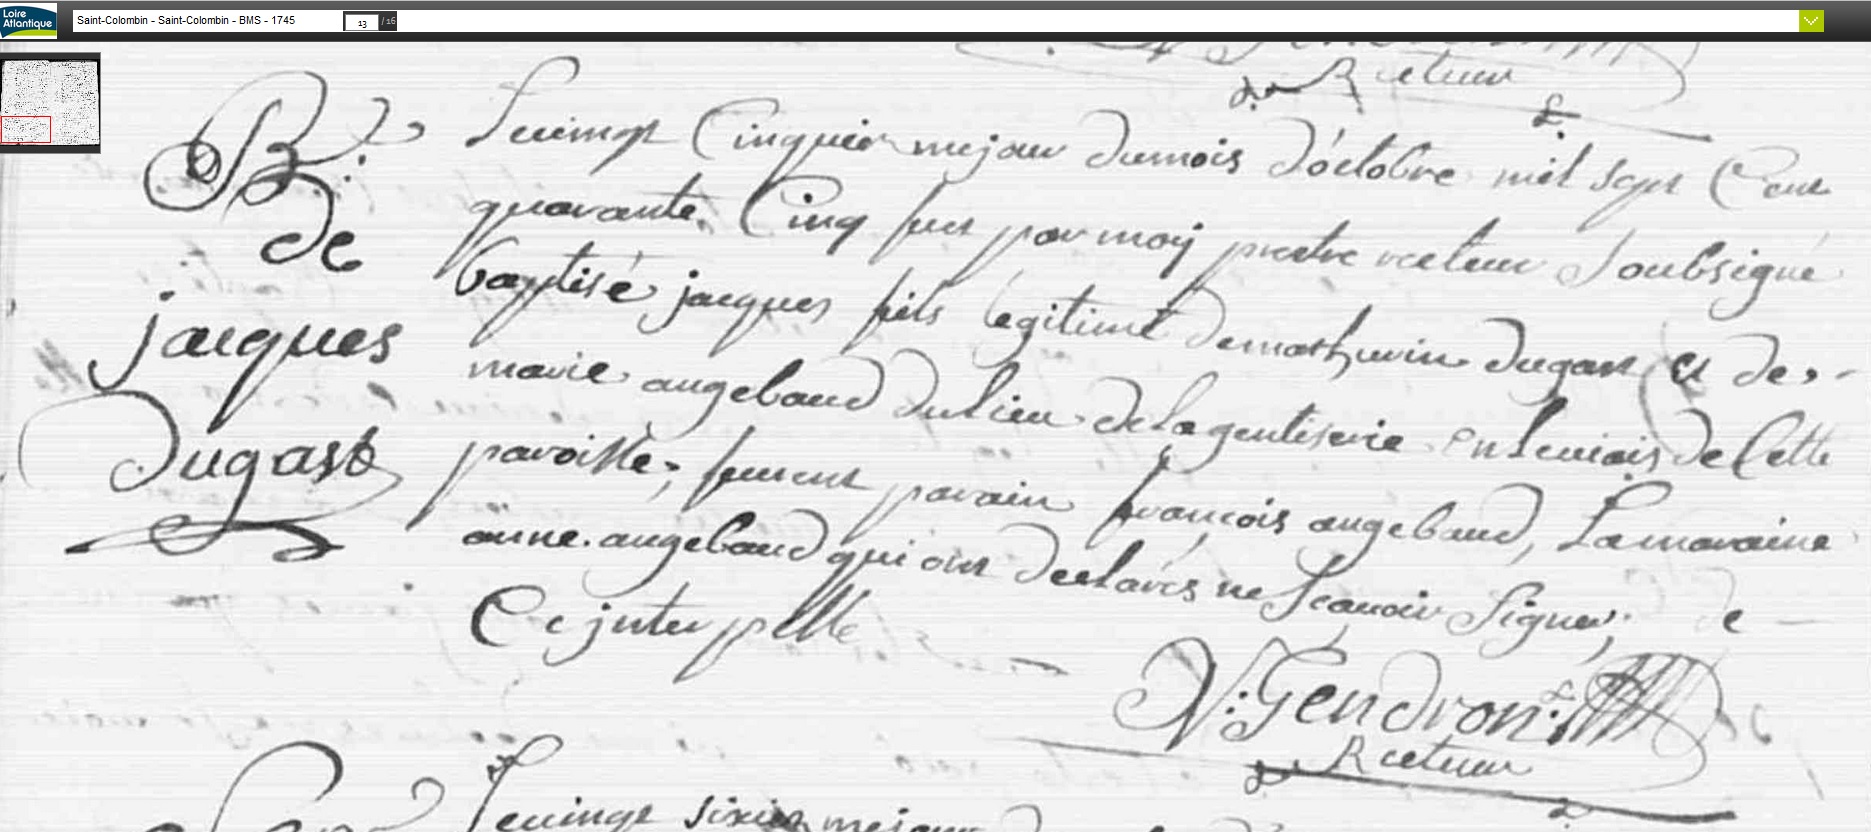 Loire
Atlantique
Saint-Colombin - Saint-Colombin - BMS - 1745
13 / 16
Recteur
B.
de
jacques
Dugast
Le vingt Cinquiesme jour du mois d'octobre mil sept Cent
quarante Cinq fut par moy prestre recteur Soubsigné
baptisé jacques fils legitime de mathurin dugast et de
marie angebaud du lieu de la gentiserie en de Cette
paroisse; furent parain françois angebaud, La maraine
anne angebaud qui ont declarés ne Scavoir Signer; de
Ce jnterpellé
V. Gendron
Recteur
Le vingt sixiesme jour